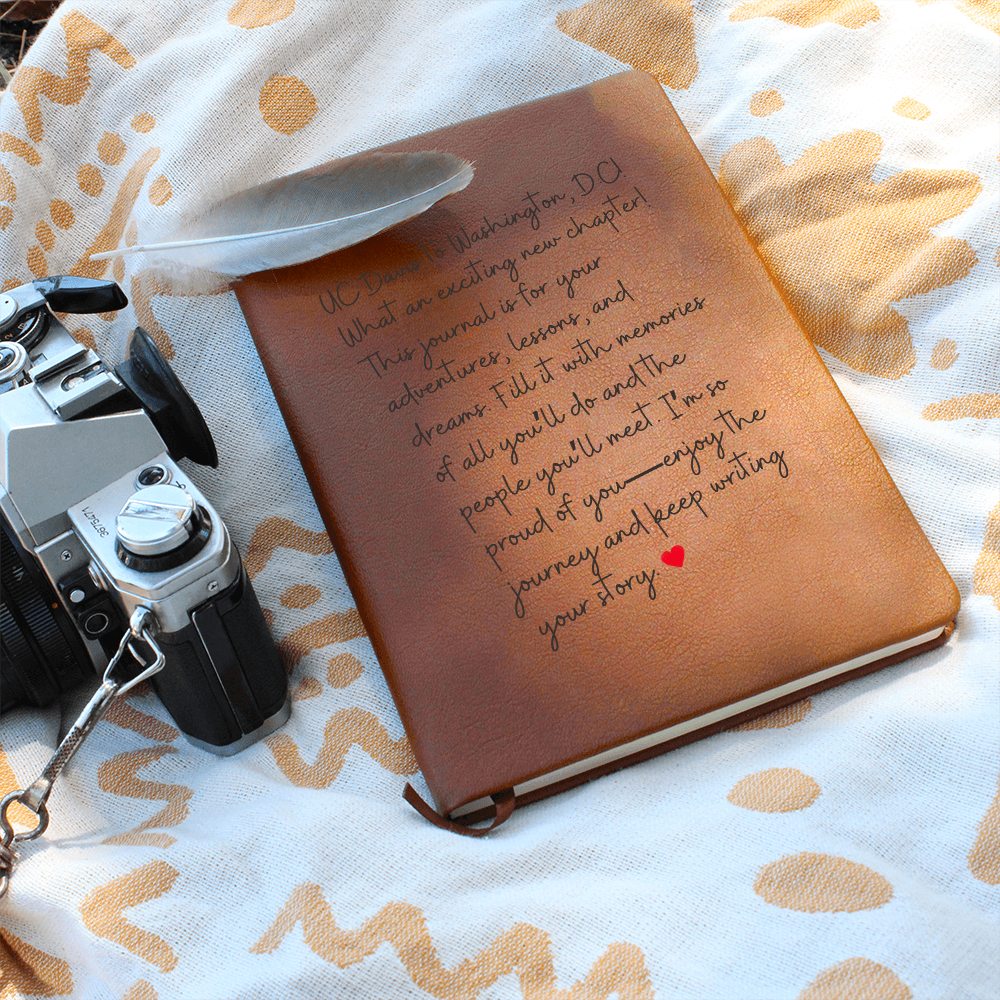 UC Davis to Washington, D.C!
What an exciting new chapter!
This journal is for your
adventures, lessons, and
dreams. Fill it with memories
of all you'll do and the
people you'll meet. I'm so
proud of you—enjoy the
journey and keep writing
your story. ❤
3675471